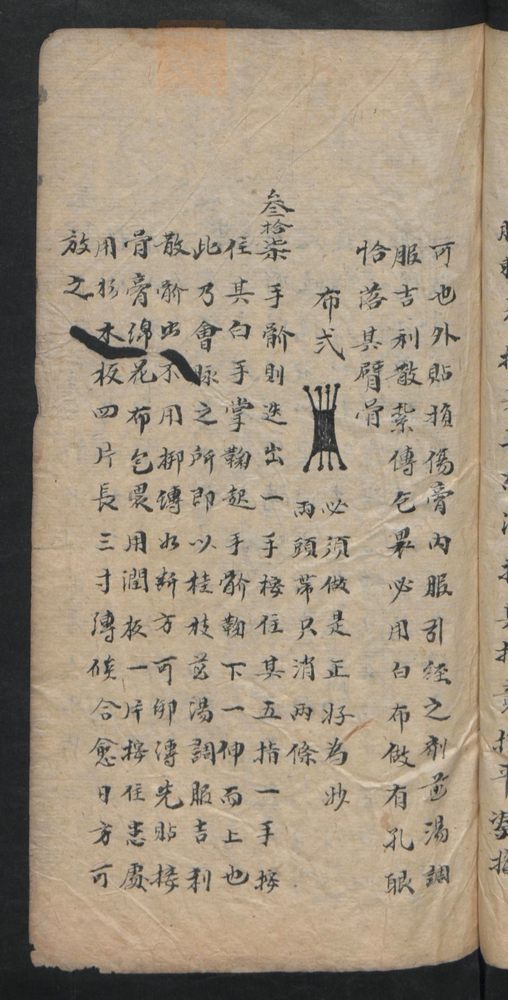 可也外貼損傷膏內服引經之劑煎湯調
服吉利散紮縛包裹必用白布做有孔眼
恰落其臂骨
布式
必須做是正好為妙
兩頭帶只消兩條
叁拾柒手骱則迭出一手按住其五指一手按
住其臼手掌鞠起手骱鞠下一伸而上也
此乃會脉之所即以桂枝煎湯調服吉利
散骱出不用綁縛如斷方可綁縛先貼接
骨膏綿花布包裹用濶板一片按住患處
用杉木板四片長三寸縛候合愈日方可
放之